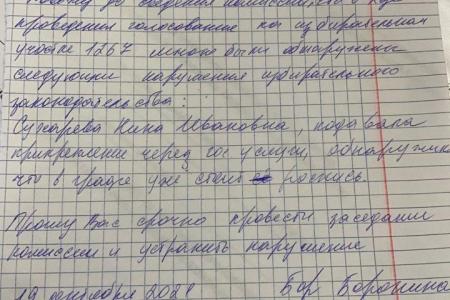 до сведения комиссии, что в ходе
проведения голосования на избирательном
участке 1267 мною были обнаружены
следующии нарушения избирательного
законодательства:
Сухарева Нина Ивановна, подавала
прикрепление через гос услуги, обнаружила
что в графе уже стоит роспись.
Прошу Вас срочно провести заседании
комиссии и устранить нарушение
19 сентября 2021 Бор Боронина